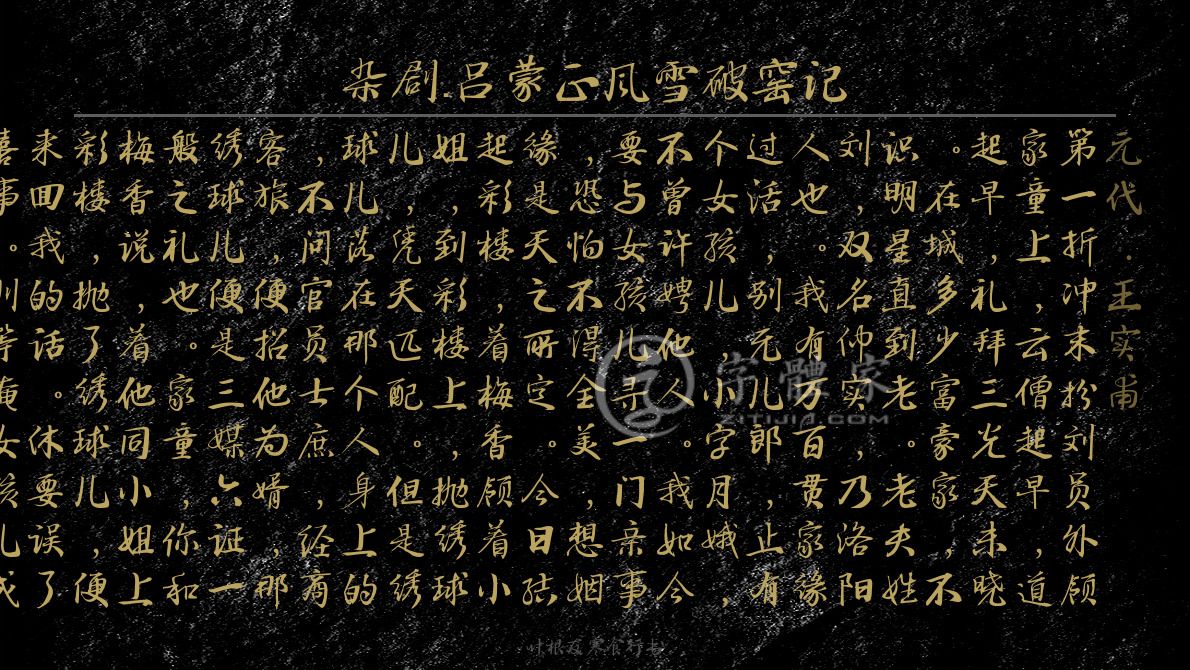 杂剧·吕蒙正风雪破窑记
元代·王实甫
第一折冲末扮刘员外领
家童上，云僧起早，道
起早，礼三光天未晓
。在城多少富豪家，不
识明星直到老。老夫姓
刘，双名仲实，乃洛阳
人也。我有万贯家缘
过活，别无儿郎，止有
个女孩儿，小字月娥，
不曾许娉他人。我如今
要与女孩儿寻一门亲事
，恐怕不得全美，想姻
缘是天之所定。今日结
起彩楼，着梅香领着小
姐，到彩楼上，抛绣球
儿，凭天匹配。但是绣
球儿落在那个人身上的
，不问官员士庶，经商
客旅，便招他为婿，那
绣球儿便是三媒六证一
般之礼也。家童，你和
梅香说，着他同小姐上
彩楼，抛了绣球儿，便
来回我的话。休要误了
喜事。刘等俺女孩儿成
字體家
XITIJIA.COM
叶根友寒食行书